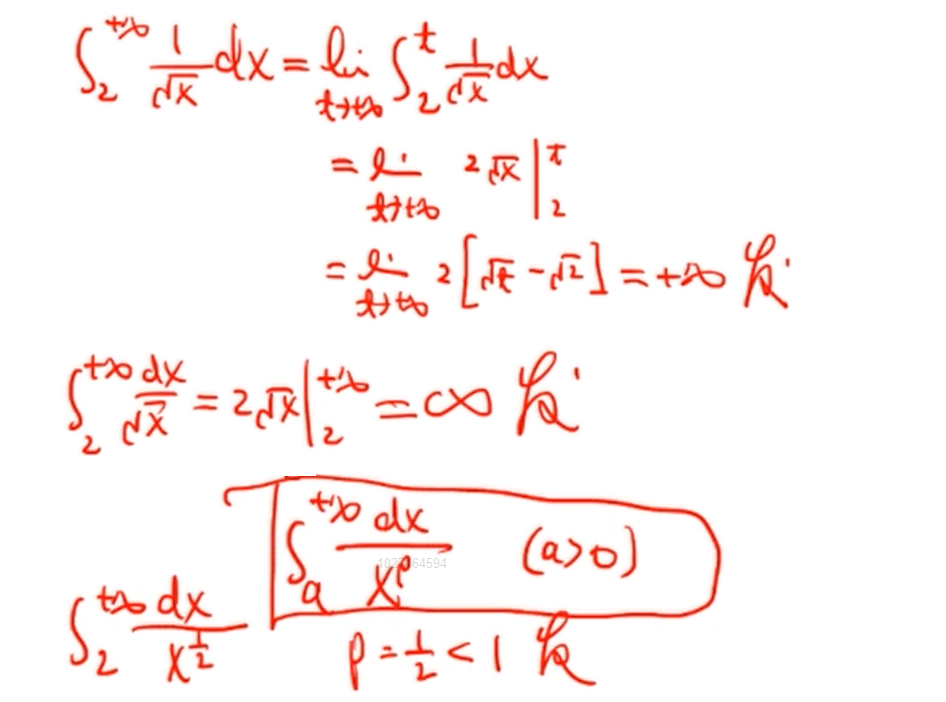 ∫₂^{+∞} 1/√x dx = lim_{t→+∞} ∫₂^t 1/√x dx
= lim_{t→+∞} 2√x |₂^t
= lim_{t→+∞} 2[√t - √2] = +∞
∫₂^{+∞} dx/√x = 2√x |₂^{+∞} = ∞
∫ₐ^{+∞} dx/x^p (a>0)
1027164594
∫₂^{+∞} dx/x^{1/2} p = 1/2 < 1